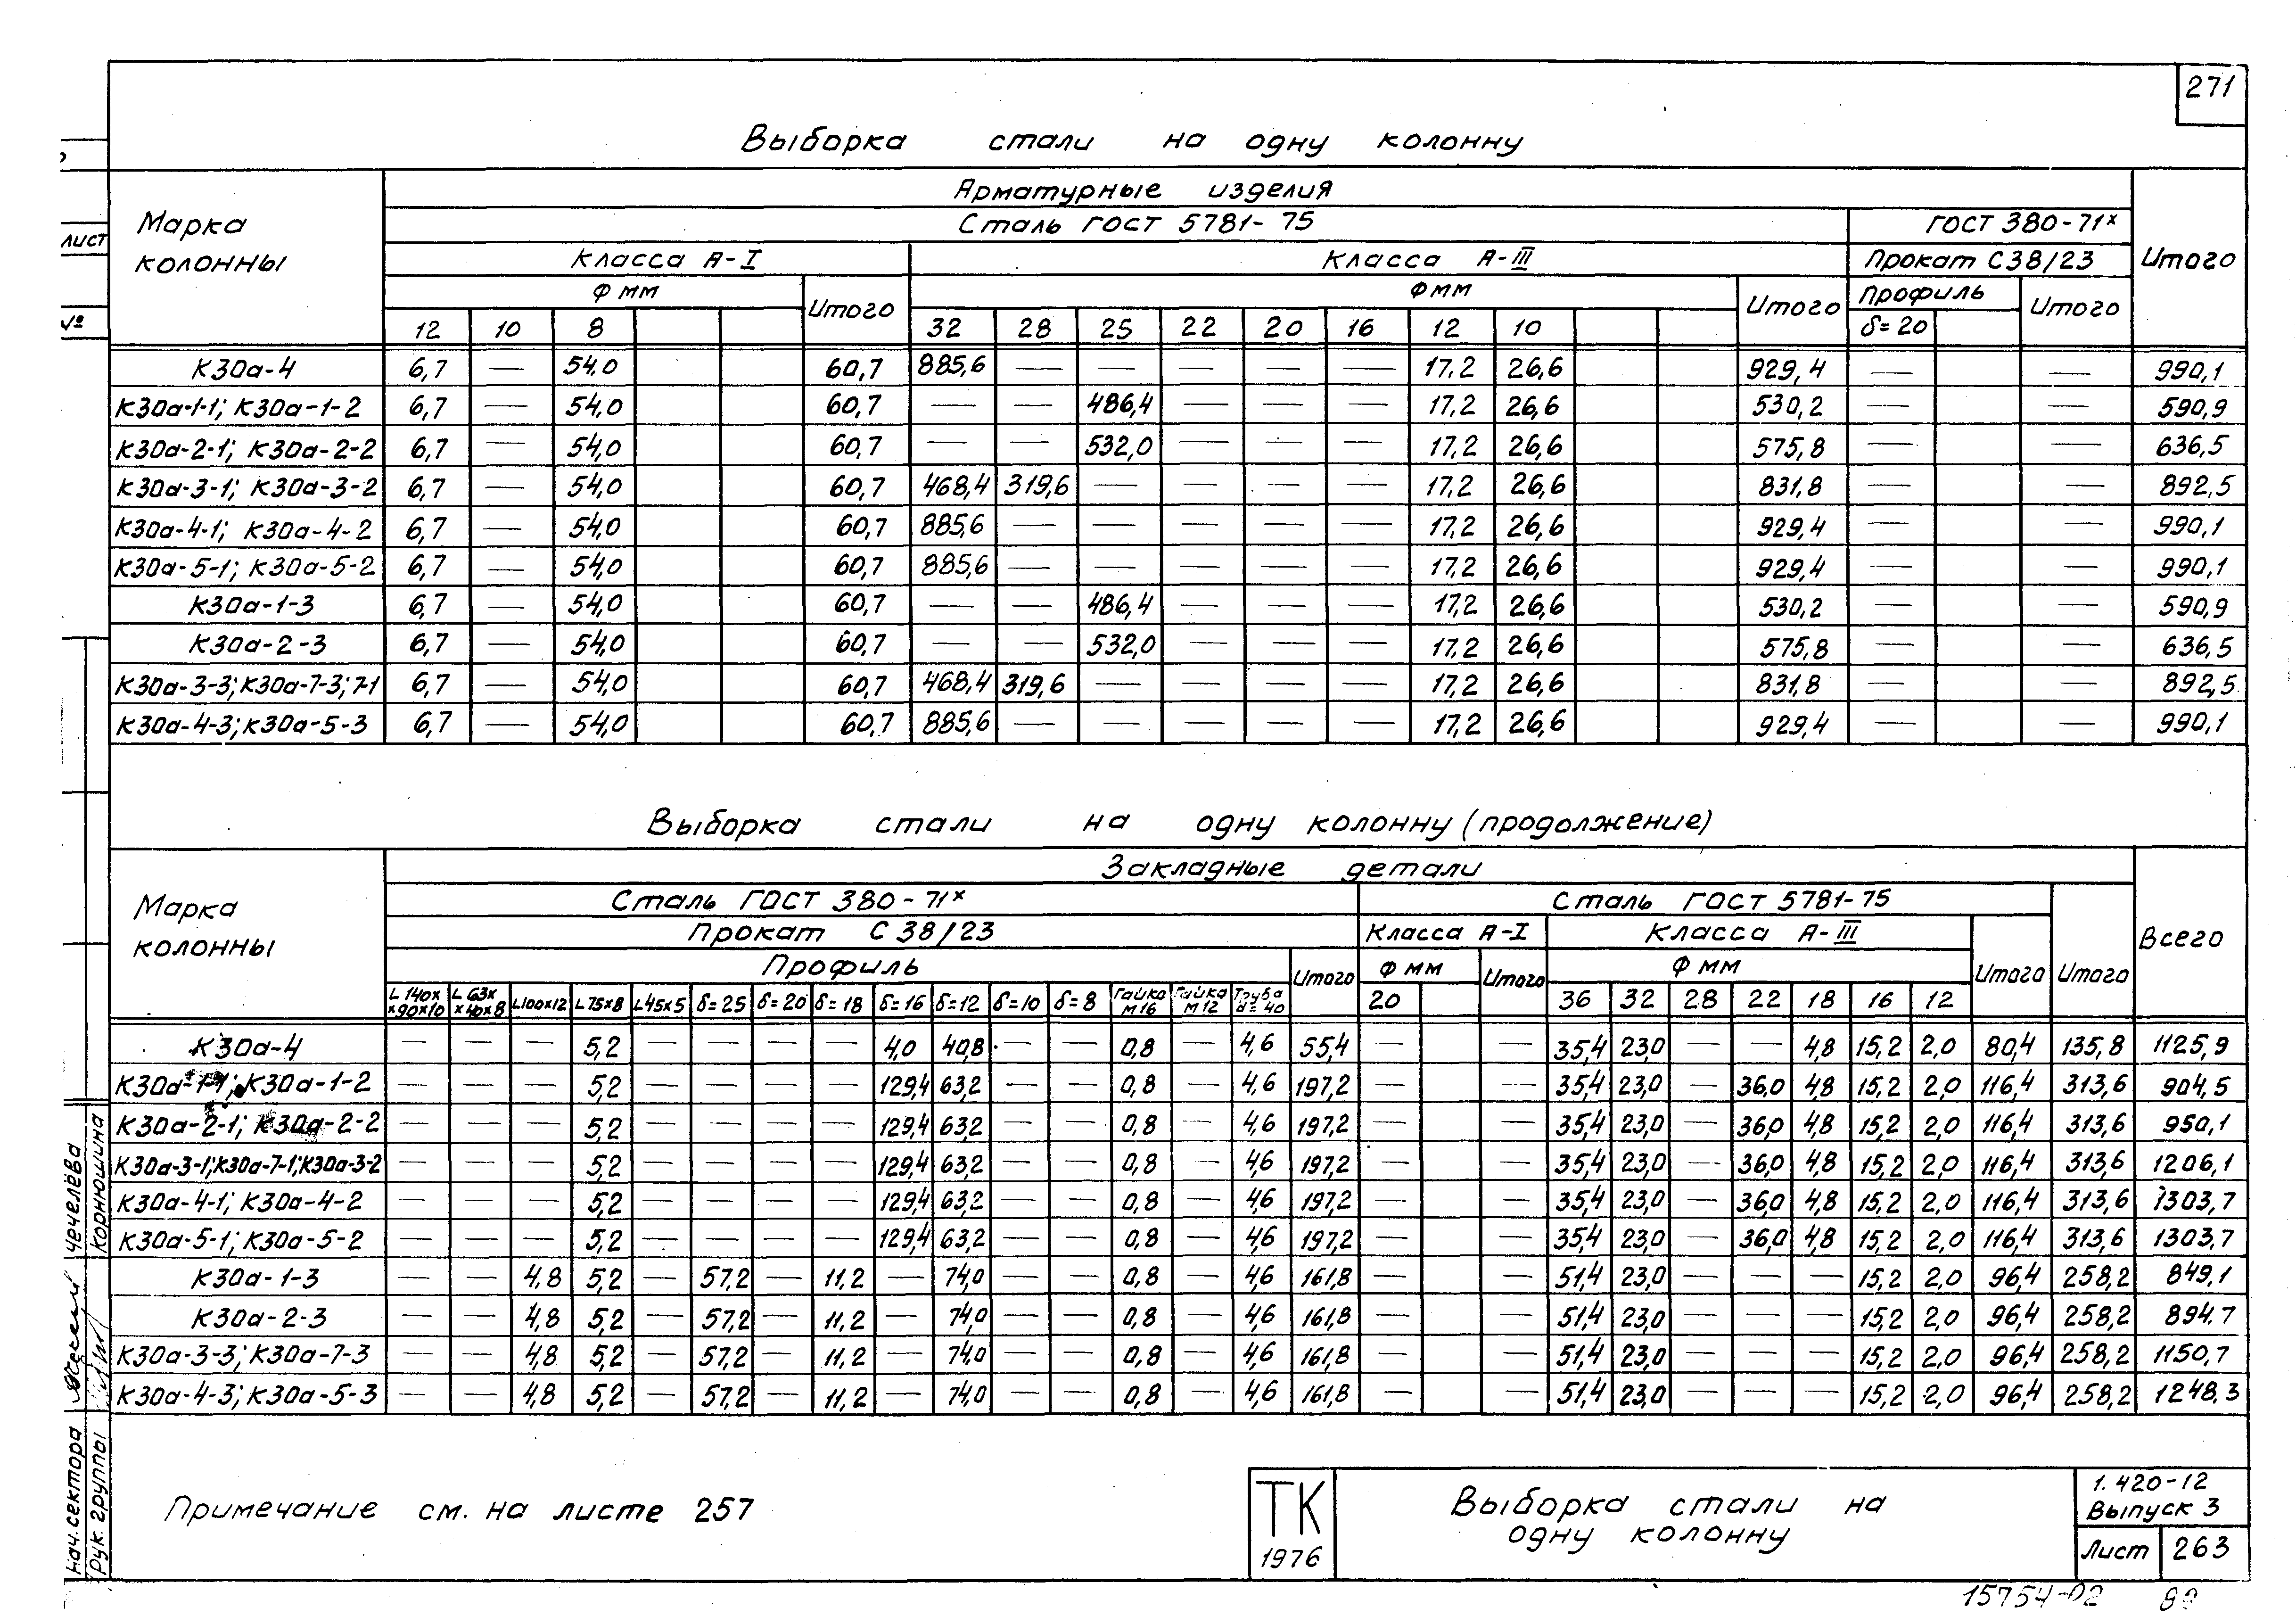 271
Выборка стали на одну колонну
Марка колонны
Арматурные изделия
Итого
Сталь ГОСТ 5781-75
ГОСТ 380-71ˣ
Класса А-I
Класса А-III
Прокат С38/23
Ф мм
Итого
Ф мм
Итого
Профиль
Итого
12 10 8 32 28 25 22 20 16 12 10 δ=20
К30а-4 6,7 — 54,0 60,7 885,6 — — — — — 17,2 26,6 929,4 — — 990,1
К30а-1-1; К30а-1-2 6,7 — 54,0 60,7 — — 486,4 — — — 17,2 26,6 530,2 — — 590,9
К30а-2-1; К30а-2-2 6,7 — 54,0 60,7 — — 532,0 — — — 17,2 26,6 575,8 — — 636,5
К30а-3-1; К30а-3-2 6,7 — 54,0 60,7 468,4 319,6 — — — — 17,2 26,6 831,8 — — 892,5
К30а-4-1; К30а-4-2 6,7 — 54,0 60,7 885,6 — — — — — 17,2 26,6 929,4 — — 990,1
К30а-5-1; К30а-5-2 6,7 — 54,0 60,7 885,6 — — — — — 17,2 26,6 929,4 — — 990,1
К30а-1-3 6,7 — 54,0 60,7 — — 486,4 — — — 17,2 26,6 530,2 — — 590,9
К30а-2-3 6,7 — 54,0 60,7 — — 532,0 — — — 17,2 26,6 575,8 — — 636,5
К30а-3-3; К30а-7-3; 7-1 6,7 — 54,0 60,7 468,4 319,6 — — — — 17,2 26,6 831,8 — — 892,5
К30а-4-3; К30а-5-3 6,7 — 54,0 60,7 885,6 — — — — — 17,2 26,6 929,4 — — 990,1
Выборка стали на одну колонну (продолжение)
Марка колонны
Закладные детали
Всего
Сталь ГОСТ 380-71ˣ
Сталь ГОСТ 5781-75
Итого
Прокат С 38/23
Класса А-I
Класса А-III
Итого
Профиль
Итого
Ф мм
Итого
Ф мм
L 140××90×10 L 63××40×8 L100×12 L75×8 L45×5 δ=25 δ=20 δ=18 δ=16 δ=12 δ=10 δ=8 Гайка М16 Гайка М12 Труба d=40 20 36 32 28 22 18 16 12
К30а-4 — — — 5,2 — — — — 4,0 40,8 — — 0,8 — 4,6 55,4 — — 35,4 23,0 — — 4,8 15,2 2,0 80,4 135,8 1125,9
К30а-1-1; К30а-1-2 — — — 5,2 — — — — 129,4 63,2 — — 0,8 — 4,6 197,2 — — 35,4 23,0 — 36,0 4,8 15,2 2,0 116,4 313,6 904,5
К30а-2-1; К30а-2-2 — — — 5,2 — — — — 129,4 63,2 — — 0,8 — 4,6 197,2 — — 35,4 23,0 — 36,0 4,8 15,2 2,0 116,4 313,6 950,1
К30а-3-1; К30а-7-1; К30а-3-2 — — — 5,2 — — — — 129,4 63,2 — — 0,8 — 4,6 197,2 — — 35,4 23,0 — 36,0 4,8 15,2 2,0 116,4 313,6 1206,1
К30а-4-1; К30а-4-2 — — — 5,2 — — — — 129,4 63,2 — — 0,8 — 4,6 197,2 — — 35,4 23,0 — 36,0 4,8 15,2 2,0 116,4 313,6 1303,7
К30а-5-1; К30а-5-2 — — — 5,2 — — — — 129,4 63,2 — — 0,8 — 4,6 197,2 — — 35,4 23,0 — 36,0 4,8 15,2 2,0 116,4 313,6 1303,7
К30а-1-3 — — 4,8 5,2 — 57,2 — 11,2 — 74,0 — — 0,8 — 4,6 161,8 — — 51,4 23,0 — — — 15,2 2,0 96,4 258,2 849,1
К30а-2-3 — — 4,8 5,2 — 57,2 — 11,2 — 74,0 — — 0,8 — 4,6 161,8 — — 51,4 23,0 — — — 15,2 2,0 96,4 258,2 894,7
К30а-3-3; К30а-7-3 — — 4,8 5,2 — 57,2 — 11,2 — 74,0 — — 0,8 — 4,6 161,8 — — 51,4 23,0 — — — 15,2 2,0 96,4 258,2 1150,7
К30а-4-3; К30а-5-3 — — 4,8 5,2 — 57,2 — 11,2 — 74,0 — — 0,8 — 4,6 161,8 — — 51,4 23,0 — — — 15,2 2,0 96,4 258,2 1248,3
Примечание см. на листе 257
ТК
1976
Выборка стали на
одну колонну
1.420-12
Выпуск 3
Лист 263
15754-02
лист
№
Нач. сектора Чечелёва
Рук. группы Корнюшина